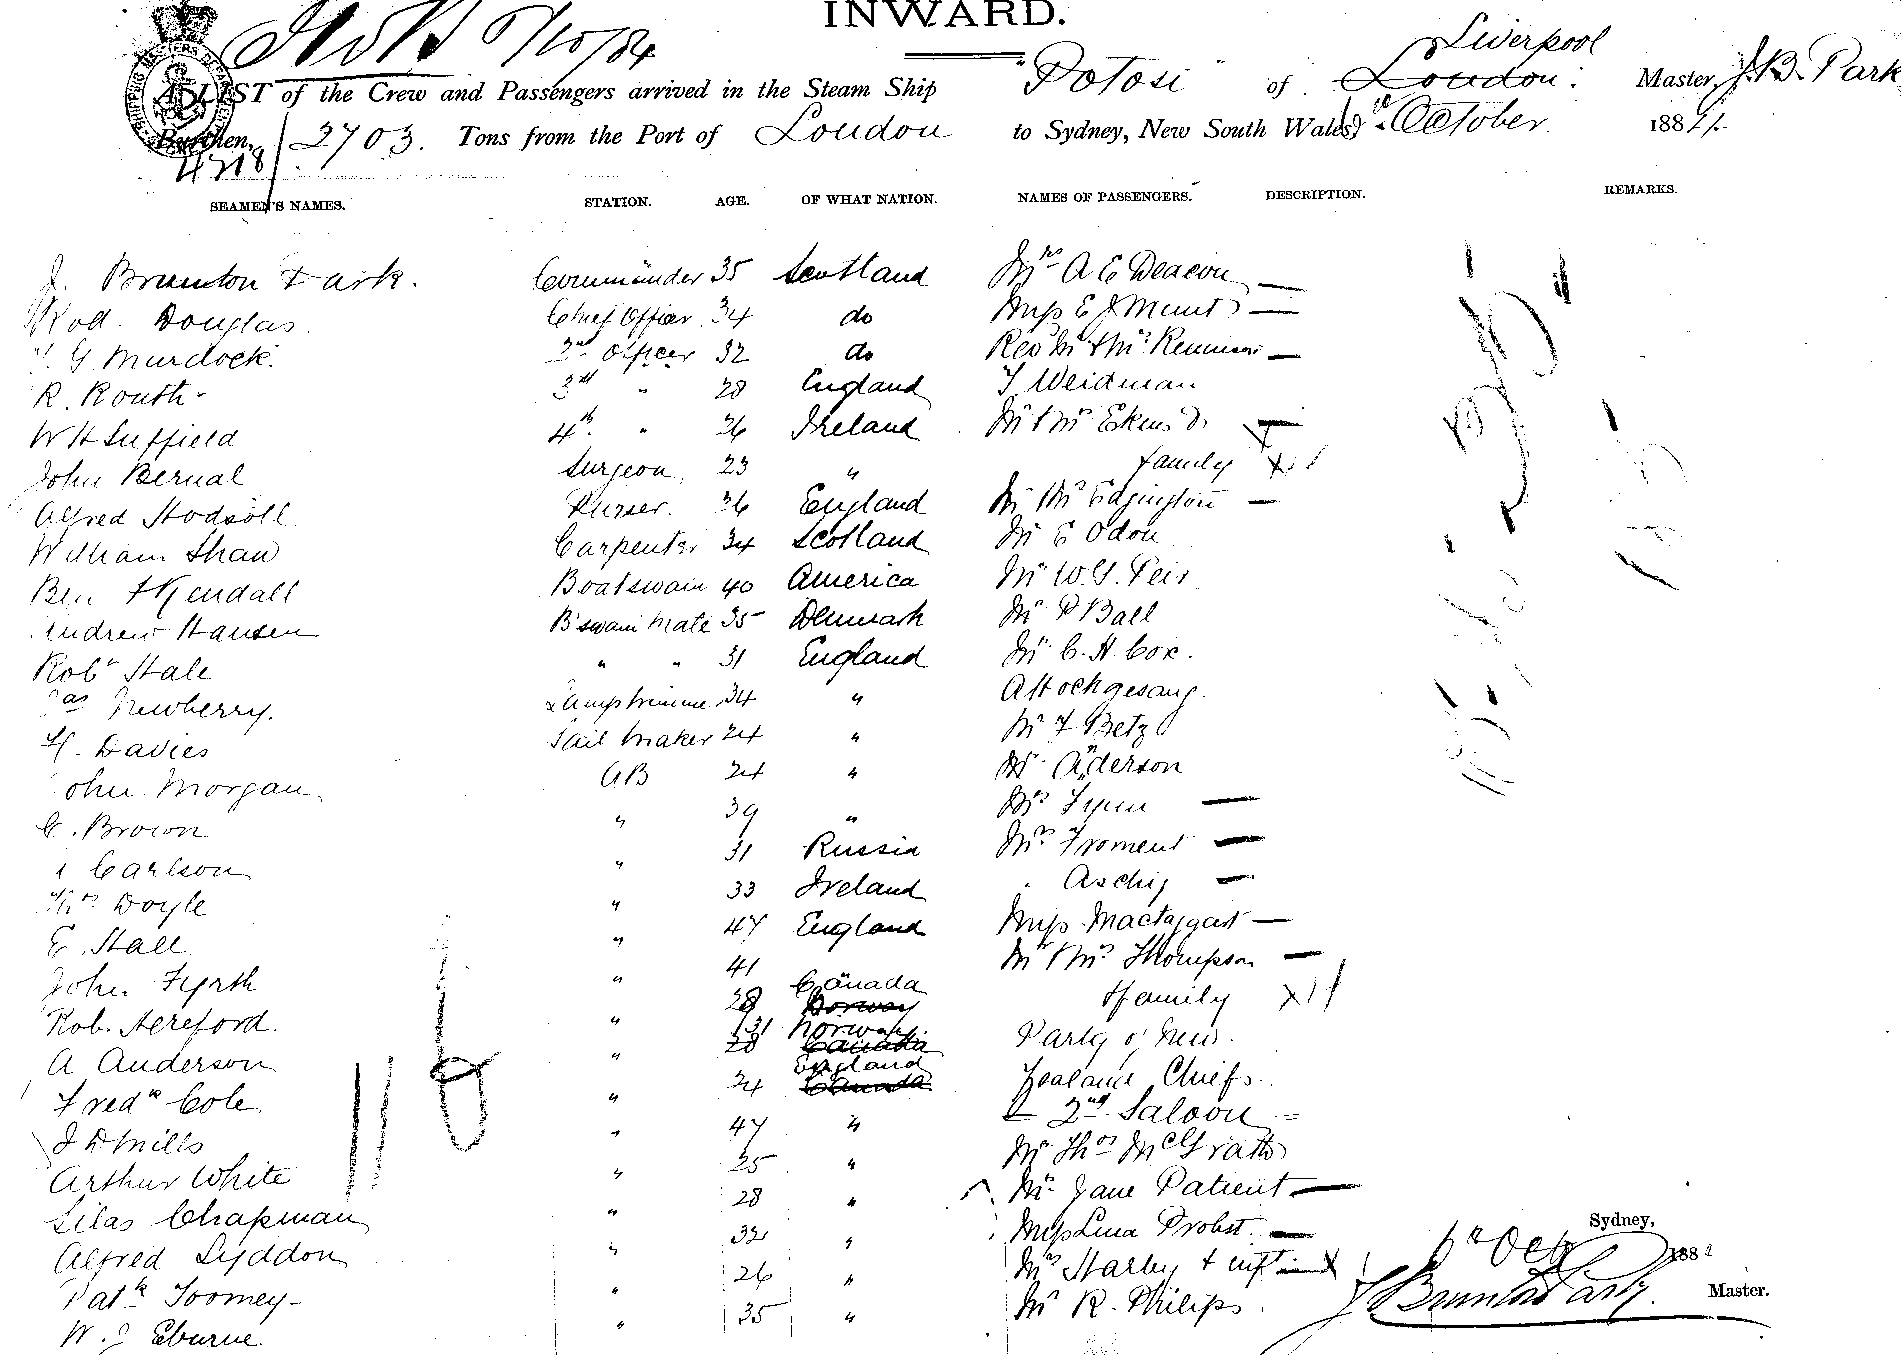 INWARD.
A LIST of the Crew and Passengers arrived in the Steam Ship "Potosi" of London Liverpool Master, J. B. Park
Burthen, 2703. Tons from the Port of London to Sydney, New South Wales, October 1884.
4218
SEAMEN'S NAMES. STATION. AGE. OF WHAT NATION. NAMES OF PASSENGERS. DESCRIPTION. REMARKS.
J. Brunton Park. Commander 35 Scotland Mrs A E Deacon
Rod. Douglas Chief Officer 34 do Miss E J Munt
G Murdock 2nd Officer 32 do Revd Mr & Mrs Rennison
R. Routh 3rd " 28 England J Weidman
W H Suffield 4th " 26 Ireland Mr & Mrs Ekens &
John Bernal Surgeon 23 " family
Alfred Hodsoll Purser. 36 England Mr & Mrs Edgington
William Shaw Carpenter 34 Scotland Mr E Odon
Ben Kendall Boatswain 40 America Mr W. G. Peir
Andrew Hansen B'swain Mate 35 Denmark Mr P Ball
Robt Hale " " 31 England Mr C. H. Cox.
Jas Newberry. Lamptrimmer 34 " A Hochgesang.
H. Davies Sail Maker 24 " Mr F Betz
John Morgan AB 24 " Mr Anderson
C. Brown " 39 " Mrs Fynn
Carlson " 31 Russia Mrs Froment
Thos Doyle " 33 Ireland " Aschig
E. Hall " 47 England Miss Mactaggart
John Fyrth " 41 Mr & Mrs Thompson
Canada
Rob. Hereford. " 28 Norway & family
A Anderson " 28 31 Norway Canada Party of New
England
Fredk Cole " 24 Canada Zealand Chiefs.
J D Mills " 47 " 2nd Saloon
Arthur White " 25 " Mr Thos McGrath
Silas Chapman " 28 " Mrs Jane Patient
Alfred Lyddon " 32 " Miss Lina Probst.
Patk Toomey " 26 " Mrs Harley & inft
W. J Eburne " 35 " Mr R. Philips.
Sydney,
6th Oct 1884
J Brunton Park Master.